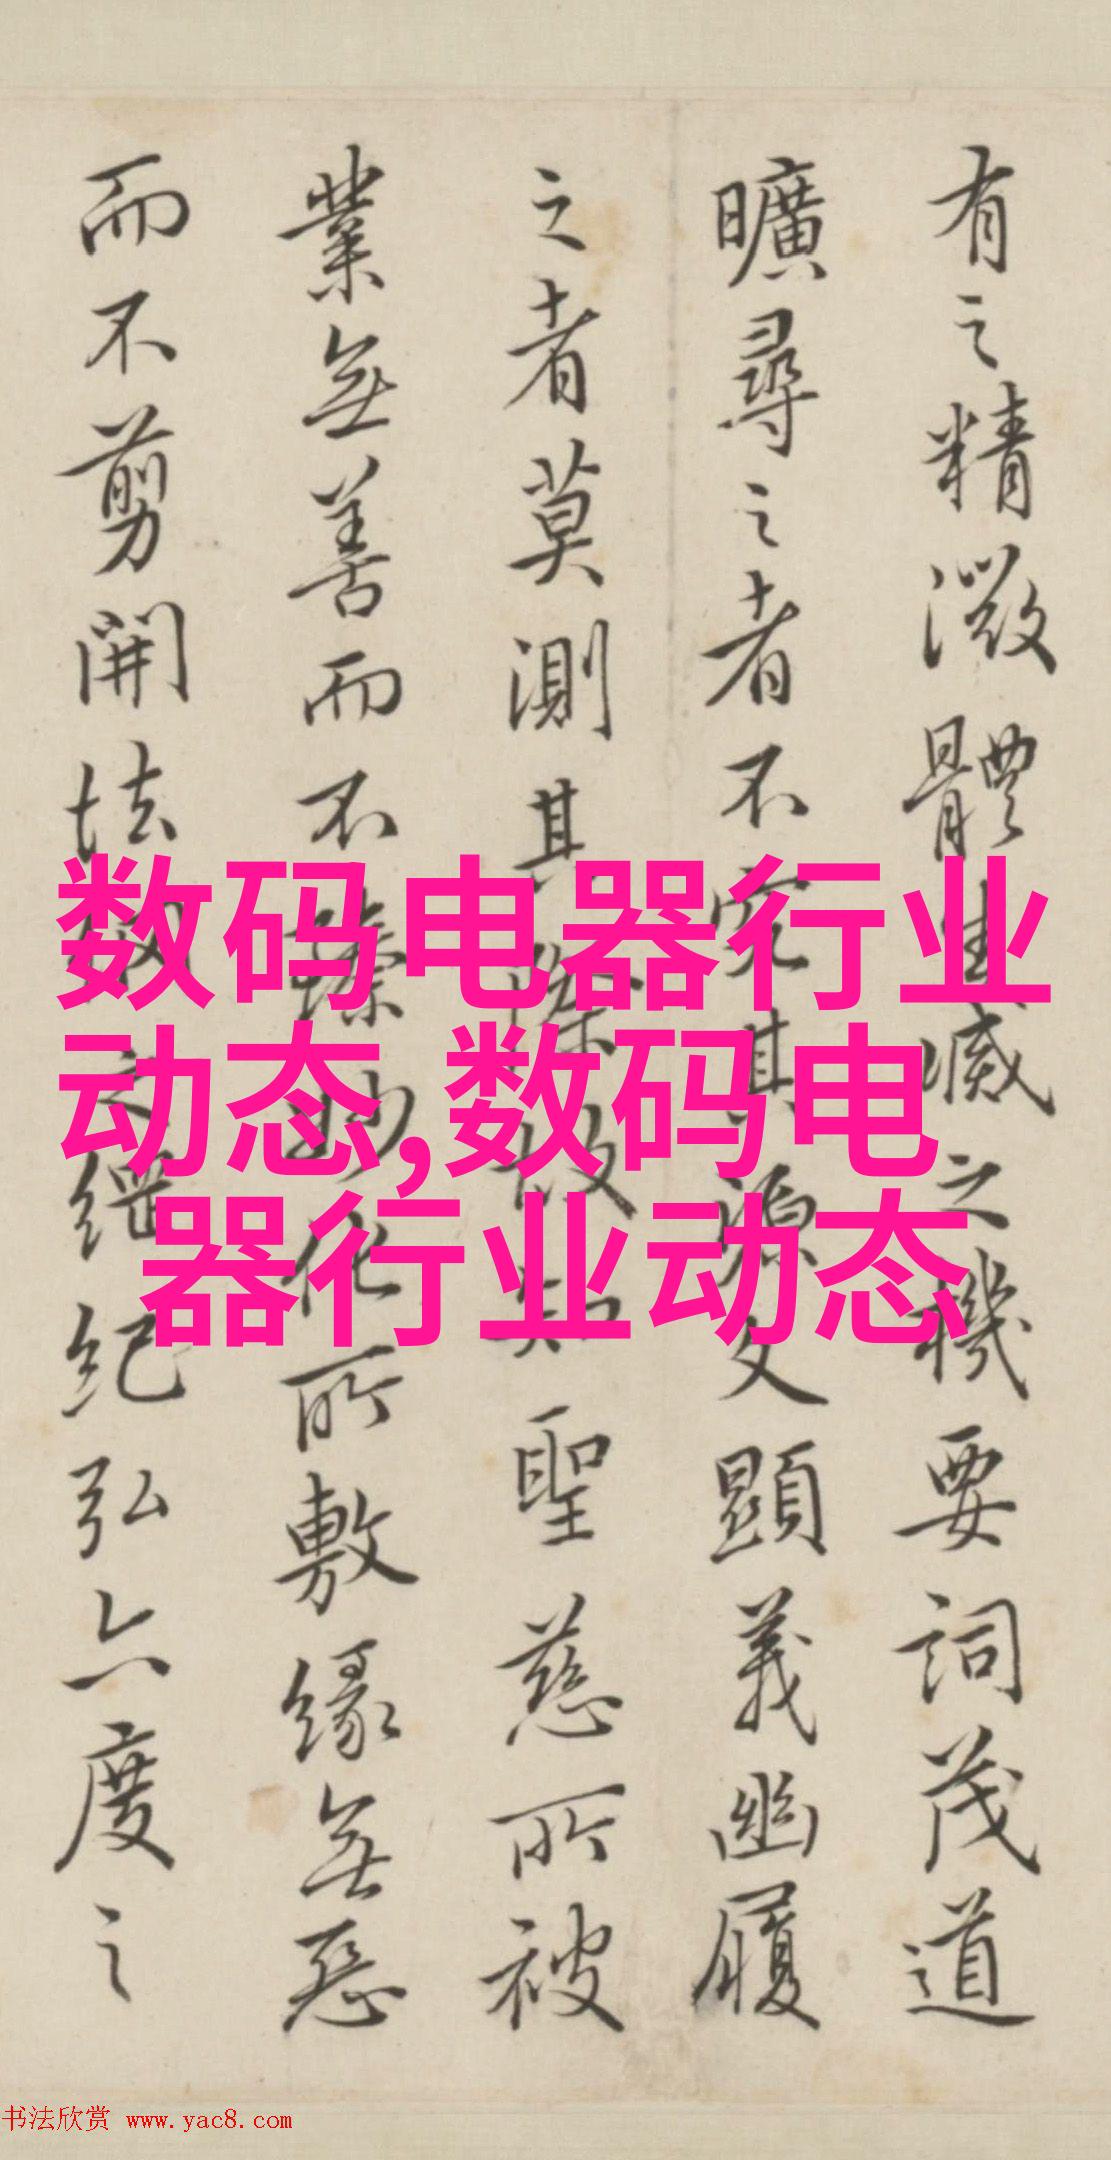 有之精微體生滅之機要詞茂道
曠尋之者不究其源文顯義幽履
之者莫測其際故知聖慈所被
業無善而不臻妙化所敷緣無惡
而不剪開法網之綱紀弘六度之
数码电器行业
动态,数码电
器行业动态
书法欣赏 www.yac8.com